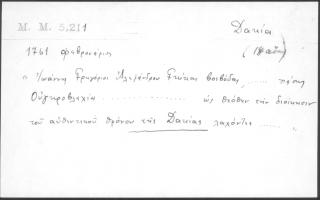 M. M. 5,211
Δακία
1741 φεβρουάριος
Ἰωάννη Γρηγόριος Ἀλεξάνδρου Γκίκας βοεβόδας, ...... πάσης
Οὑγκροβλαχίας .................. ὡς θεόθεν τὴν διοίκησιν
τοῦ αὐθεντικοῦ θρόνου τῆς Δακίας λαχόντες ........